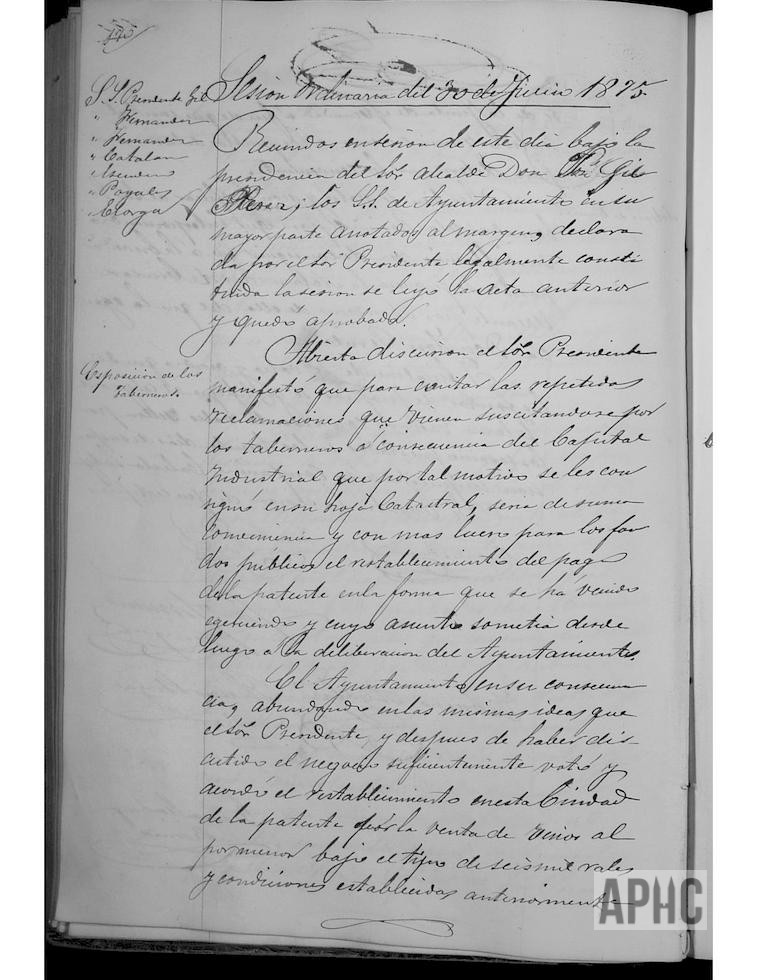 Sesion Ordinaria del 30 de Junio 1875
S.S. Presidente Gil
" Hernandez
" Hernandez
" Catalan
" Asensio
" Pagales
" Elorga
Reunidos en sesion de este dia bajo la
presidencia del Sor. Alcalde Don Gil
Perez, los S.S. de Ayuntamiento en su
mayor parte anotados al margen, declara
da por el Sor Presidente legalmente consti
tuida la sesion se leyó la acta anterior
y quedó aprobada.
Esposicion de los
Taberneros
Abierta discusion el Sor. Presidente
manifestó que para evitar las repetidas
reclamaciones que vienen suscitandose por
los taberneros á consecuencia del Capital
Industrial que por tal motivo se les con
signó en su hoja Catastral, seria de suma
conveniencia y con mas lucro para los fon
dos públicos el restablecimiento del pago
de la patente en la forma que se há venido
egerciendo y cuyo asunto sometia desde
luego a la deliberacion del Ayuntamiento.
El Ayuntamiento en su consecuen
cia, abundando en las mismas ideas que
el Sor. Presidente, y despues de haber dis-
cutido el negocio suficientemente votó y
acordó el restablecimiento en esta Ciudad
de la patente por la venta de vinos al
por menor bajo el tipo de seis mil rales
y condiciones establecidas anteriormente
APHC